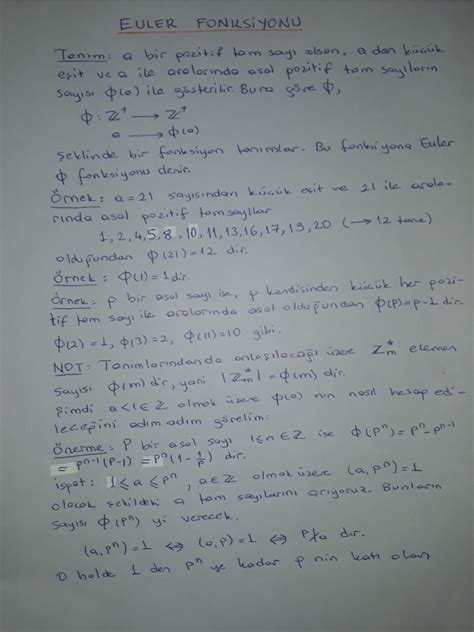 EULER FONKSİYONU
Tanım: a bir pozitif tam sayı olsun. a dan küçük
eşit ve a ile aralarında asal pozitif tam sayıların
sayısı ϕ(a) ile gösterilir. Buna göre ϕ,
ϕ : Z⁺ ⟶ Z⁺
a ⟶ ϕ(a)
şeklinde bir fonksiyon tanımlar. Bu fonksiyona Euler
ϕ fonksiyonu denir.
Örnek: a=21 sayısından küçük eşit ve 21 ile arala-
rında asal pozitif tamsayılar
1, 2, 4, 5, 8, 10, 11, 13, 16, 17, 19, 20 (⟶ 12 tane)
olduğundan ϕ(21)=12 dir.
Örnek: ϕ(1)=1 dir.
Örnek: p bir asal sayı ise, p kendisinden küçük her pozi-
tif tam sayı ile aralarında asal olduğundan ϕ(p)=p-1 dir.
ϕ(2)=1, ϕ(3)=2, ϕ(11)=10 gibi.
NOT: Tanımlarından da anlaşılacağı üzere Z*m eleman
sayısı ϕ(m) dir, yani |Z*m| = ϕ(m) dir.
Şimdi a<1∈Z olmak üzere ϕ(a) nın nasıl hesap edi-
leceğini adım adım görelim:
Önerme: p bir asal sayı 1≤n∈Z ise ϕ(pⁿ)=pⁿ-pⁿ⁻¹
= pⁿ⁻¹(p-1) = pⁿ(1-1/p) dir.
İspat: 1≤a≤pⁿ, a∈Z olmak üzere (a,pⁿ)=1
olacak şekildeki a tam sayılarını arıyoruz. Bunların
sayısı ϕ(pⁿ) yi verecek.
(a,pⁿ)=1 ⇔ (a,p)=1 ⇔ p∤a dır.
O halde 1 den pⁿ ye kadar p nin katı olan